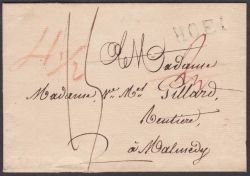 HOEI
4½
A Madame
Madame v.ve Mel Pillard
Rentière
à Malmedy